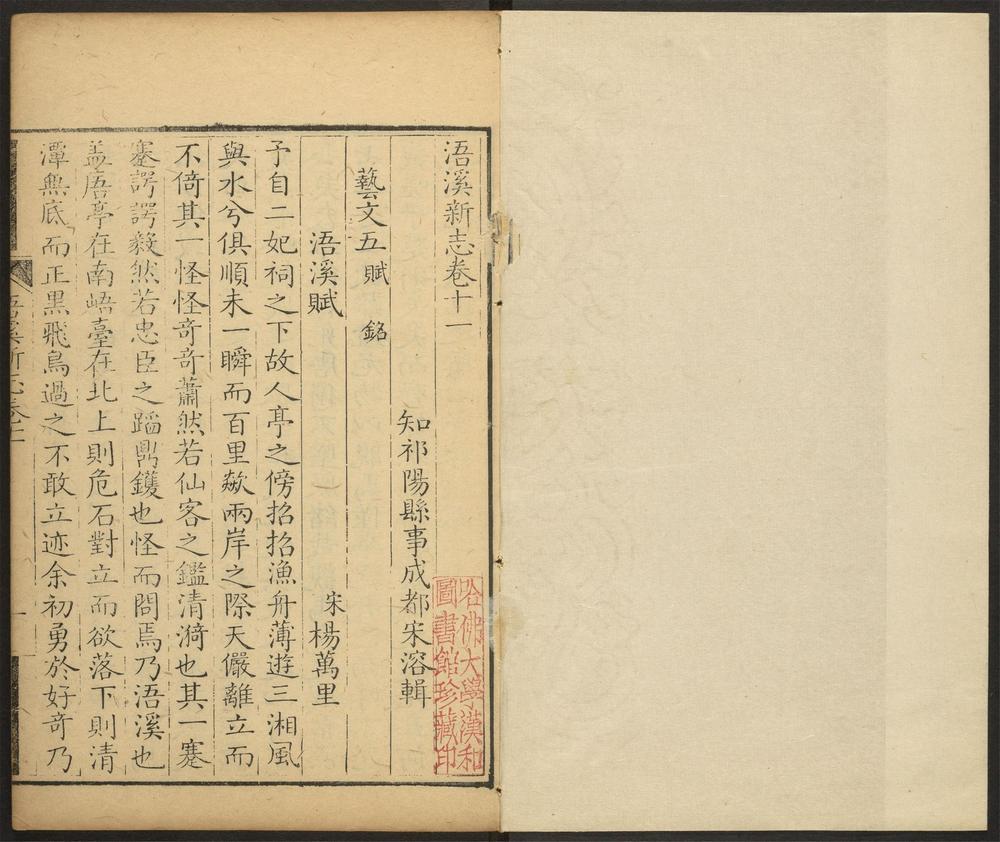 浯溪新志卷十一
知祁陽縣事成都宋溶輯
藝文五 賦 銘
浯溪賦 宋 楊萬里
予自二妃祠之下故人亭之傍招招漁舟薄遊三湘風
與水兮俱順未一瞬而百里欻兩岸之際天儼離立而
不倚其一怪怪奇奇蕭然若仙客之鑑清漪也其一蹇
蹇諤諤毅然若忠臣之蹈鼎鑊也怪而問焉乃浯溪也
盖㾿亭在南峿臺在北上則危石對立而欲落下則清
潭無底而正黑飛鳥過之不敢立迹余初勇於好奇乃
浯溪新志卷十一
一
哈佛大學漢和
圖書館珍藏印